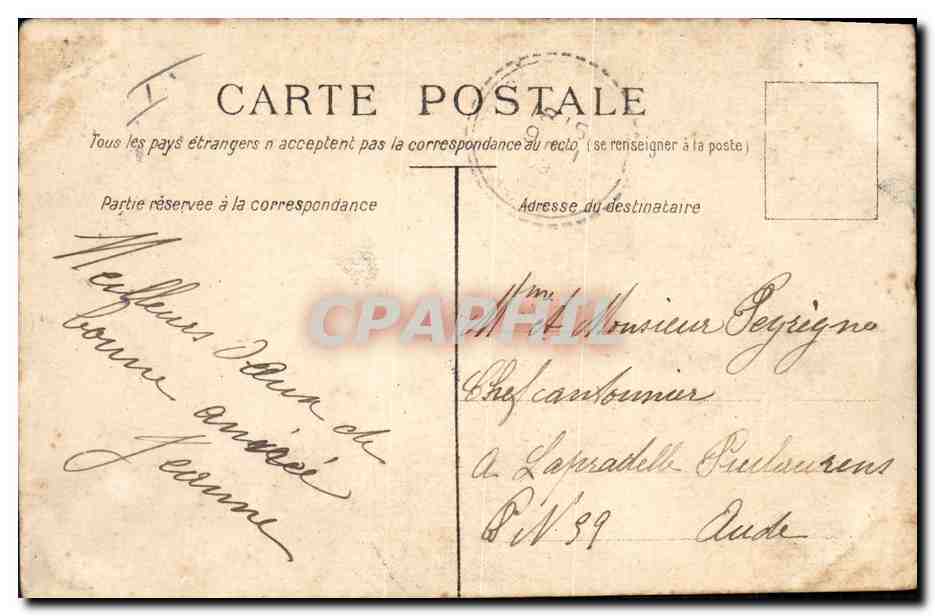 CARTE POSTALE
Tous les pays étrangers n'acceptent pas la correspondance au recto, (se renseigner à la poste)
Partie réservée à la correspondance
Adresse du destinataire
Meilleurs vœux de
bonne année
Jeanne
CPAPHIL
Mme et Monsieur Peyrigne
Chef cantonnier
a Lapradelle Puilaurens
Aude